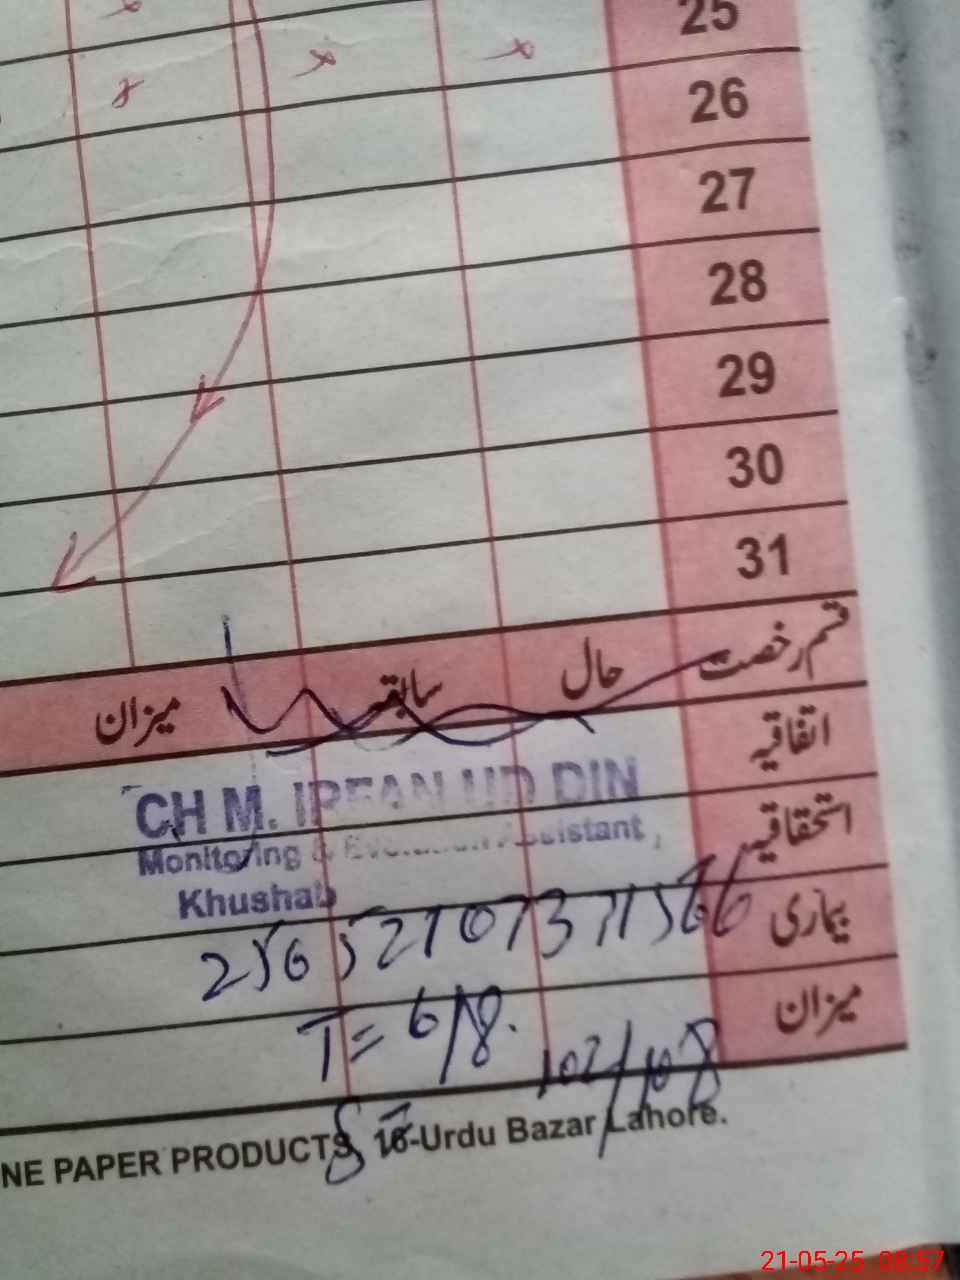 25
26
27
28
29
30
31
قسم رخصت حال سابقہ میزان
اتفاقیہ
استحقاقیہ
بیماری
میزان
CH M. IRFAN UD DIN
Monitoring & Assistant,
Khushab
T = 6/8.
102/108
NE PAPER PRODUCTS, 16-Urdu Bazar Lahore.
21-05-25 08:57